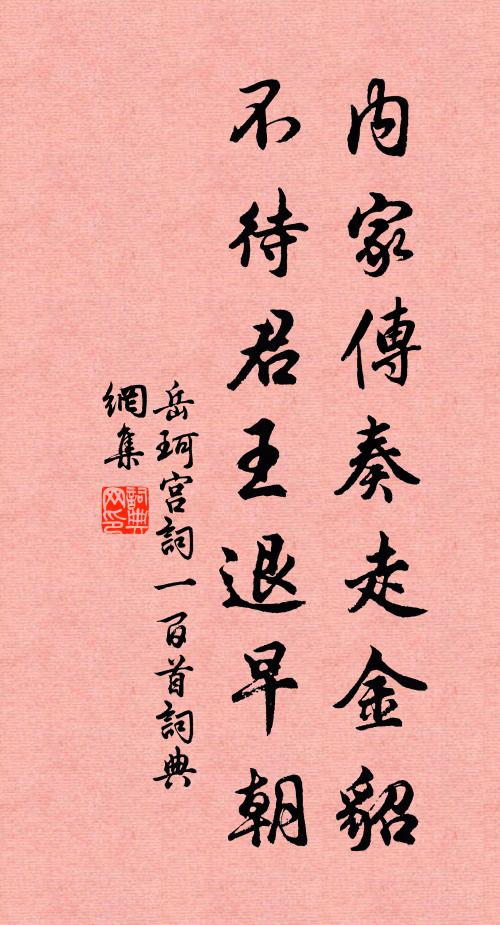 內家傳奏走金貂
不待君王退早朝
岳珂宮詞一百首詞典
網集
詞典
网印